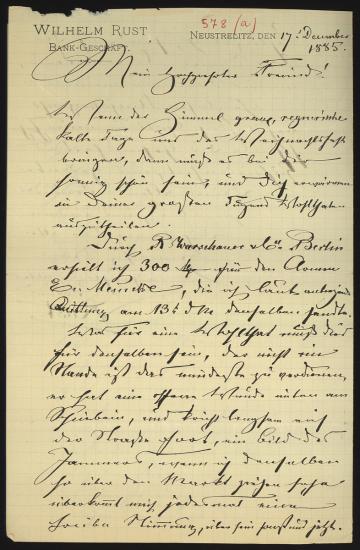 578 (a)
WILHELM RUST
BANK-GESCHÄFT.
NEUSTRELITZ, DEN 17t December
1885.
Mein hochgeehrter Freund!
Wenn der Himmel graue, regnerische
kalte Tage uns das Weihnachtsfest
bringen, dann muß es bei Dir
sonnig schön sein, und Dich erwärmen
in Deine großen Tugend Wohlthaten
auszutheilen.
Durch R. Warschauer & Co. Berlin
erhielt ich 300 für den Armen
die ich laut anbei
Quittung am 13t d. M. demselben sandte.
Was für eine Wohlthat muß dies
für denselben sein, der nicht im
Stande ist das mindeste zu verdienen,
er hat eine offene Wunde unten am
Schienbein, und kriecht langsam auf
der Straße fort, ein Bild des
Jammers, wenn ich denselben
so über den Markt gehen sehe
überkommt mich jedesmal eine
trübe Stimmung, über sein und jetzt.